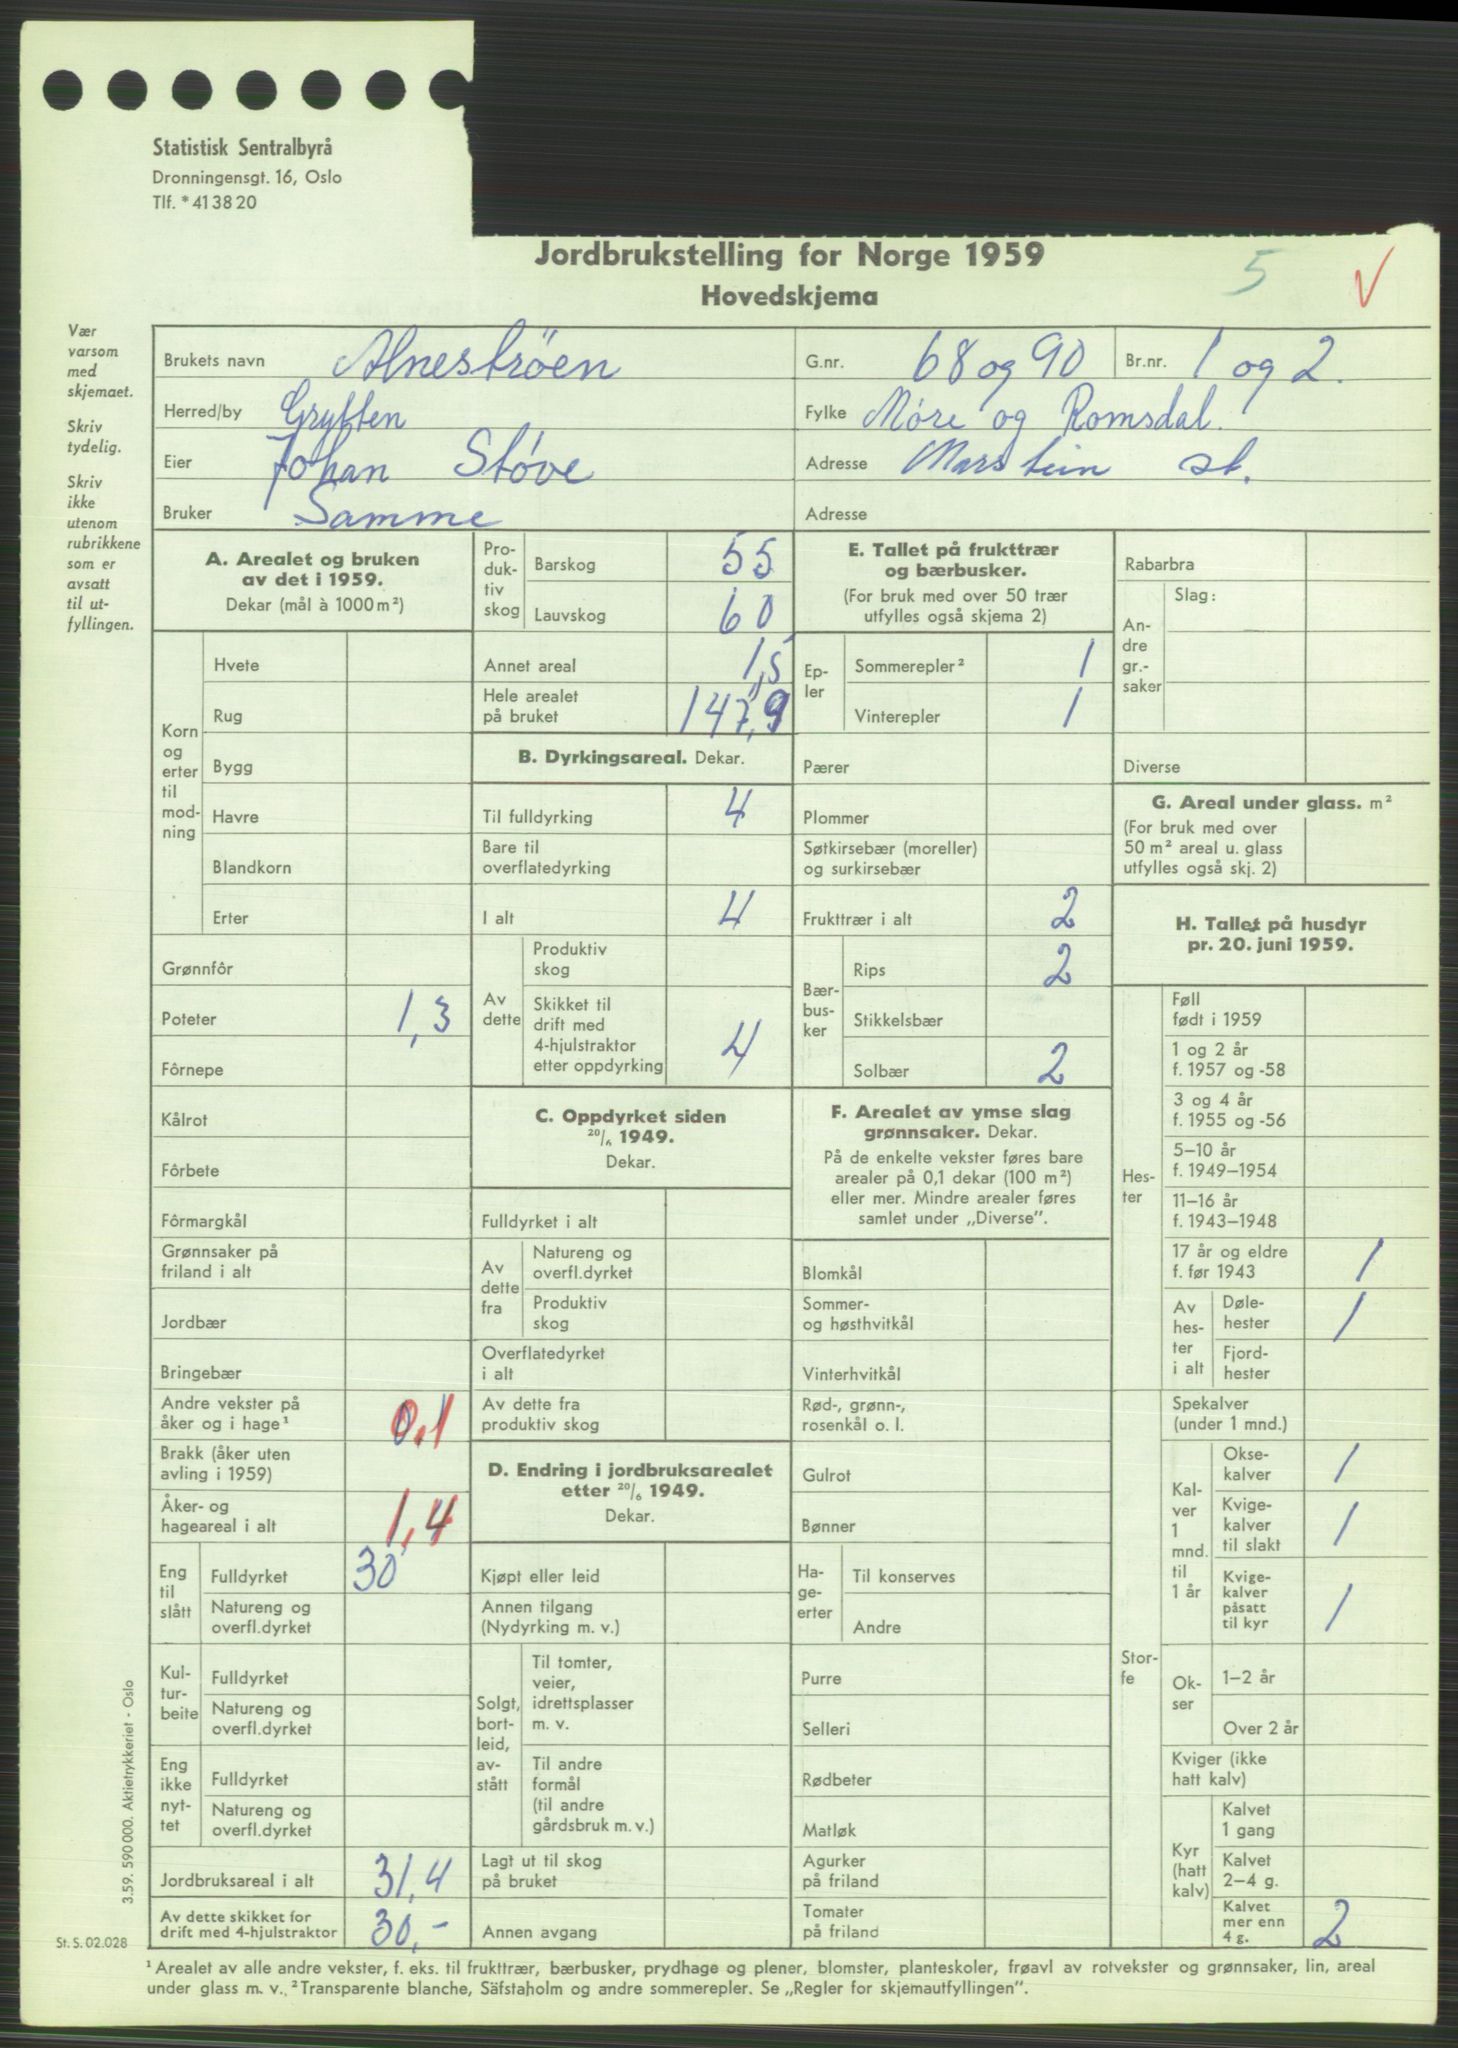 Statistisk Sentralbyrå
Dronningensgt. 16, Oslo
Tlf. * 41 38 20
Jordbrukstelling for Norge 1959
Hovedskjema
5
Vær
varsom
med
skjemaet.
Skriv
tydelig.
Skriv
ikke
utenom
rubrikkene
som er
avsatt
til ut-
fyllingen.
Brukets navn Alnestrøen G.nr. 68 og 90 Br.nr. 1 og 2.
Herred/by Grytten Fylke Møre og Romsdal.
Eier Johan Støve Adresse Marstein st.
Bruker Samme Adresse
A. Arealet og bruken
av det i 1959.
Dekar (mål à 1000 m²)
Korn
og
erter
til
mod-
ning
Hvete
Rug
Bygg
Havre
Blandkorn
Erter
Grønnfôr
Poteter 1,3
Fôrnepe
Kålrot
Fôrbete
Fôrmargkål
Grønnsaker på
friland i alt
Jordbær
Bringebær
Andre vekster på
åker og i hage¹ 0,1
Brakk (åker uten
avling i 1959)
Åker- og
hageareal i alt 1,4
Eng
til
slått
Fulldyrket 30
Natureng og
overfl.dyrket
Kul-
tur-
beite
Fulldyrket
Natureng og
overfl.dyrket
Eng
ikke
nyt-
tet
Fulldyrket
Natureng og
overfl.dyrket
Jordbruksareal i alt 31,4
Av dette skikket for
drift med 4-hjulstraktor 30,-
Pro-
duk-
tiv
skog
Barskog 55
Lauvskog 60
Annet areal 1,5
Hele arealet
på bruket 147,9
B. Dyrkingsareal. Dekar.
Til fulldyrking 4
Bare til
overflatedyrking
I alt 4
Av
dette
Produktiv
skog
Skikket til
drift med
4-hjulstraktor
etter oppdyrking 4
C. Oppdyrket siden
20/6 1949.
Dekar.
Fulldyrket i alt
Av
dette
fra
Natureng og
overfl.dyrket
Produktiv
skog
Overflatedyrket
i alt
Av dette fra
produktiv skog
D. Endring i jordbruksarealet
etter 20/6 1949.
Dekar.
Kjøpt eller leid
Annen tilgang
(Nydyrking m. v.)
Solgt,
bort-
leid,
av-
stått
Til tomter,
veier,
idrettsplasser
m. v.
Til andre
formål
(til andre
gårdsbruk m. v.)
Lagt ut til skog
på bruket
Annen avgang
E. Tallet på frukttrær
og bærbusker.
(For bruk med over 50 trær
utfylles også skjema 2)
Ep-
ler
Sommerepler² 1
Vinterepler 1
Pærer
Plommer
Søtkirsebær (moreller)
og surkirsebær
Frukttrær i alt 2
Bær-
bus-
ker
Rips 2
Stikkelsbær
Solbær 2
F. Arealet av ymse slag
grønnsaker. Dekar.
På de enkelte vekster føres bare
arealer på 0,1 dekar (100 m²)
eller mer. Mindre arealer føres
samlet under „Diverse”.
Blomkål
Sommer-
og høsthvitkål
Vinterhvitkål
Rød-, grønn-,
rosenkål o. l.
Gulrot
Bønner
Ha-
ge-
erter
Til konserves
Andre
Purre
Selleri
Rødbeter
Matløk
Agurker
på friland
Tomater
på friland
Rabarbra
An-
dre
gr.-
saker
Slag:
Diverse
G. Areal under glass. m²
(For bruk med over
50 m² areal u. glass
utfylles også skj. 2)
H. Tallet på husdyr
pr. 20. juni 1959.
Hes-
ter
Føll
født i 1959
1 og 2 år
f. 1957 og -58
3 og 4 år
f. 1955 og -56
5–10 år
f. 1949–1954
11–16 år
f. 1943–1948
17 år og eldre
f. før 1943 1
Av
hes-
ter
i alt
Døle-
hester 1
Fjord-
hester
Stor-
fe
Spekalver
(under 1 mnd.)
Kal-
ver
1
mnd.
til
1 år
Okse-
kalver 1
Kvige-
kalver
til slakt 1
Kvige-
kalver
påsatt
til kyr 1
Ok-
ser
1–2 år
Over 2 år
Kviger (ikke
hatt kalv)
Kyr
(hatt
kalv)
Kalvet
1 gang
Kalvet
2–4 g.
Kalvet
mer enn
4 g. 2
3.59. 590 000. Aktietrykkeriet - Oslo
St. S. 02.028
¹ Arealet av alle andre vekster, f. eks. til frukttrær, bærbusker, prydhage og plener, blomster, planteskoler, frøavl av rotvekster og grønnsaker, lin, areal
under glass m. v. ² Transparente blanche, Säfstaholm og andre sommerepler. Se „Regler for skjemautfyllingen”.